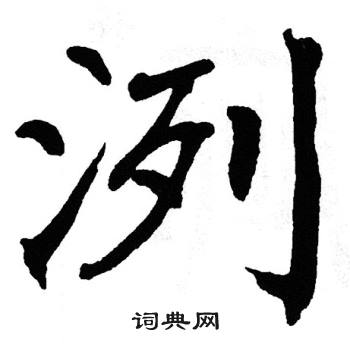 洌
词典网